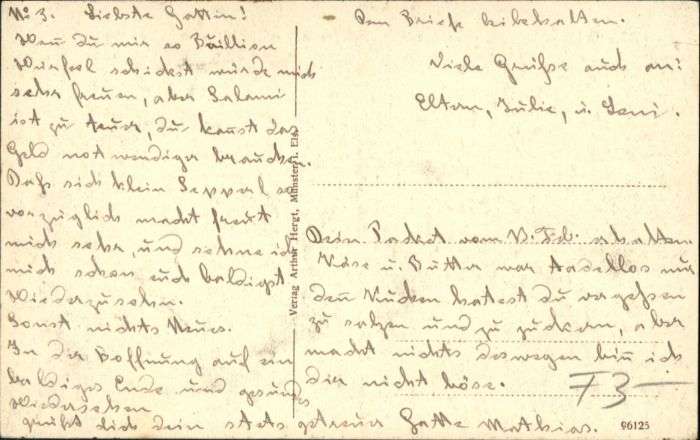 No 3. Liebste Gattin!
Wen du mir so Bäillion
Würfeel schickest würde mich
sehr freuen, aber Salami
ist zu teuer, du kannst das
Geld notwendiger brauchen.
Dass sich klein Sepperl so
vorzüglich macht freut
mich sehr, und sehne ich
mich schon euch baldigst
Wiederzusehn.
Sonst nichts Neues.
In der Hoffnung auf ein
baldiges Ende und gesundes
Wiedersehen
grüßt dich dein stets getreuer Gatte Mathias.
Den Briefe beibehalten.
Viele Grüße auch an:
Eltern, Julie, u. Leni.
Dein Packet vom 13. Feb. erhalten
Käse u. Butter war tadellos nur
den Kuchen hatest du vergessen
zu salzen und zu zuckern, aber
macht nichts deswegen bin ich
dir nicht böse.
F3—
Verlag Arthur Hergt, Münster i. Els.
96125